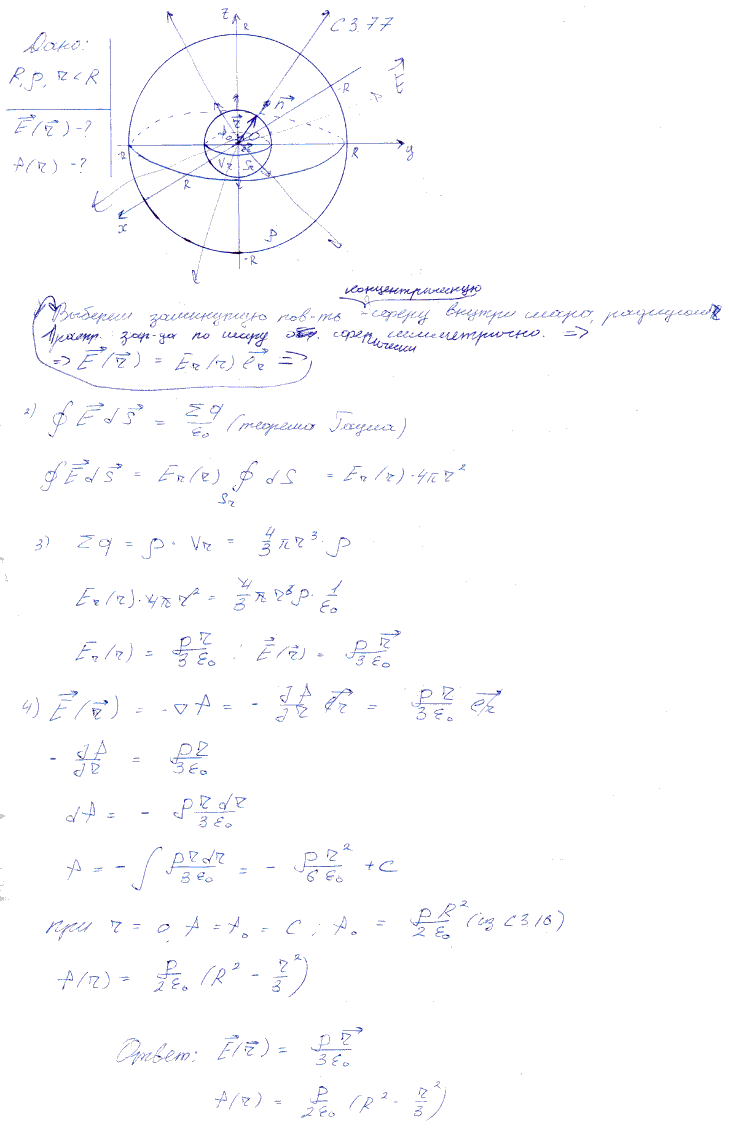 Дано:
R, ρ, r < R
E⃗(r⃗) - ?
φ(r) - ?
C 3.77
z
R
n⃗
E⃗
-R
r⃗
-R
R
y
Vr
Sr
R
x
ρ
-R
концентрическую
Выберем замкнутую пов-ть - сферу внутри шара, радиусом r
1) распр. зар-да по шару сферически симметрично. =>
=> E⃗(r⃗) = Er(r) e⃗r =>
2) ∮ E⃗ dS⃗ = Σq/ε₀ (теорема Гаусса)
∮ E⃗ dS⃗ = Er(r) ∮Sr dS = Er(r) · 4πr²
3) Σq = ρ · Vr = 4/3 πr³ · ρ
Er(r) · 4πr² = 4/3 πr³ρ · 1/ε₀
Er(r) = ρr/3ε₀ ; E⃗(r⃗) = ρr⃗/3ε₀
4) E⃗(r⃗) = -∇φ = - dφ/dr e⃗r = ρr/3ε₀ e⃗r
- dφ/dr = ρr/3ε₀
dφ = - ρrdr/3ε₀
φ = - ∫ ρrdr/3ε₀ = - ρr²/6ε₀ + C
при r = 0, φ = φ₀ = C ; φ₀ = ρR²/2ε₀ (из С3.16)
φ(r) = ρ/2ε₀ (R² - r²/3)
Ответ: E⃗(r⃗) = ρr⃗/3ε₀
φ(r) = ρ/2ε₀ (R² - r²/3)